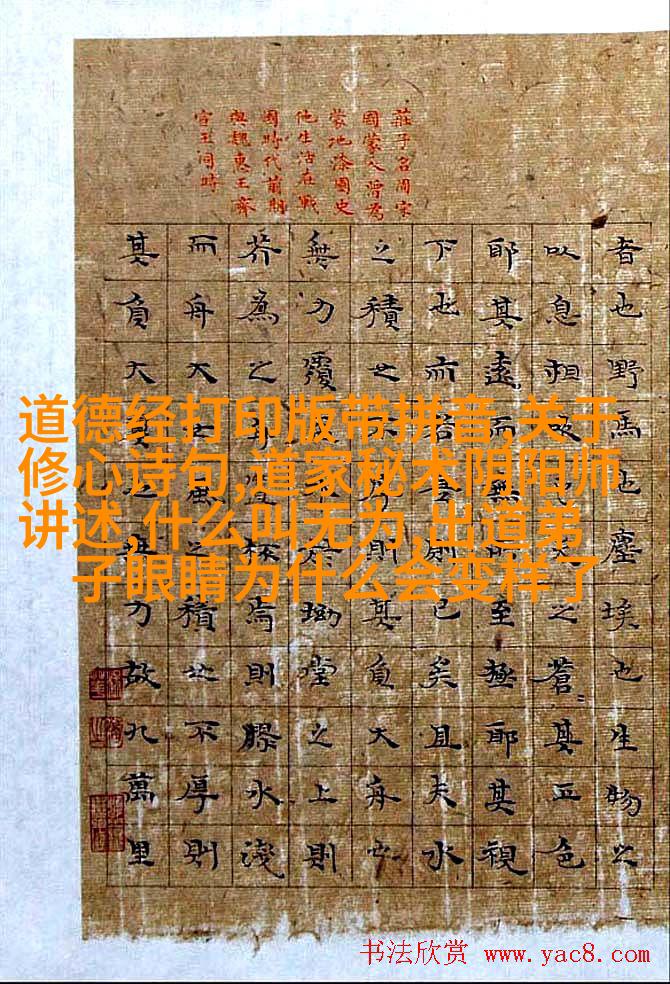 莊子名周宋
國蒙人曾為
蒙地漆園史
他生活在戰
國時代前期
與魏惠王齊
宣王同時
者也野馬也塵埃也生物之
以息相吹也天之蒼〻其正色
耶其遠而無所至極耶其視
下也而若是則已矣且夫水
之積也不厚則其負大舟也
無力覆於坳堂之上則
芥為之舟置杯焉則膠水淺
而舟大也風之積也不厚則
其負大翼也無力故九萬里
道德经打印版带拼音,关于
修心诗句,道家秘术阴阳师
讲述,什么叫无为,出道弟
子眼睛为什么会变样了
书法欣赏 www.yac8.com